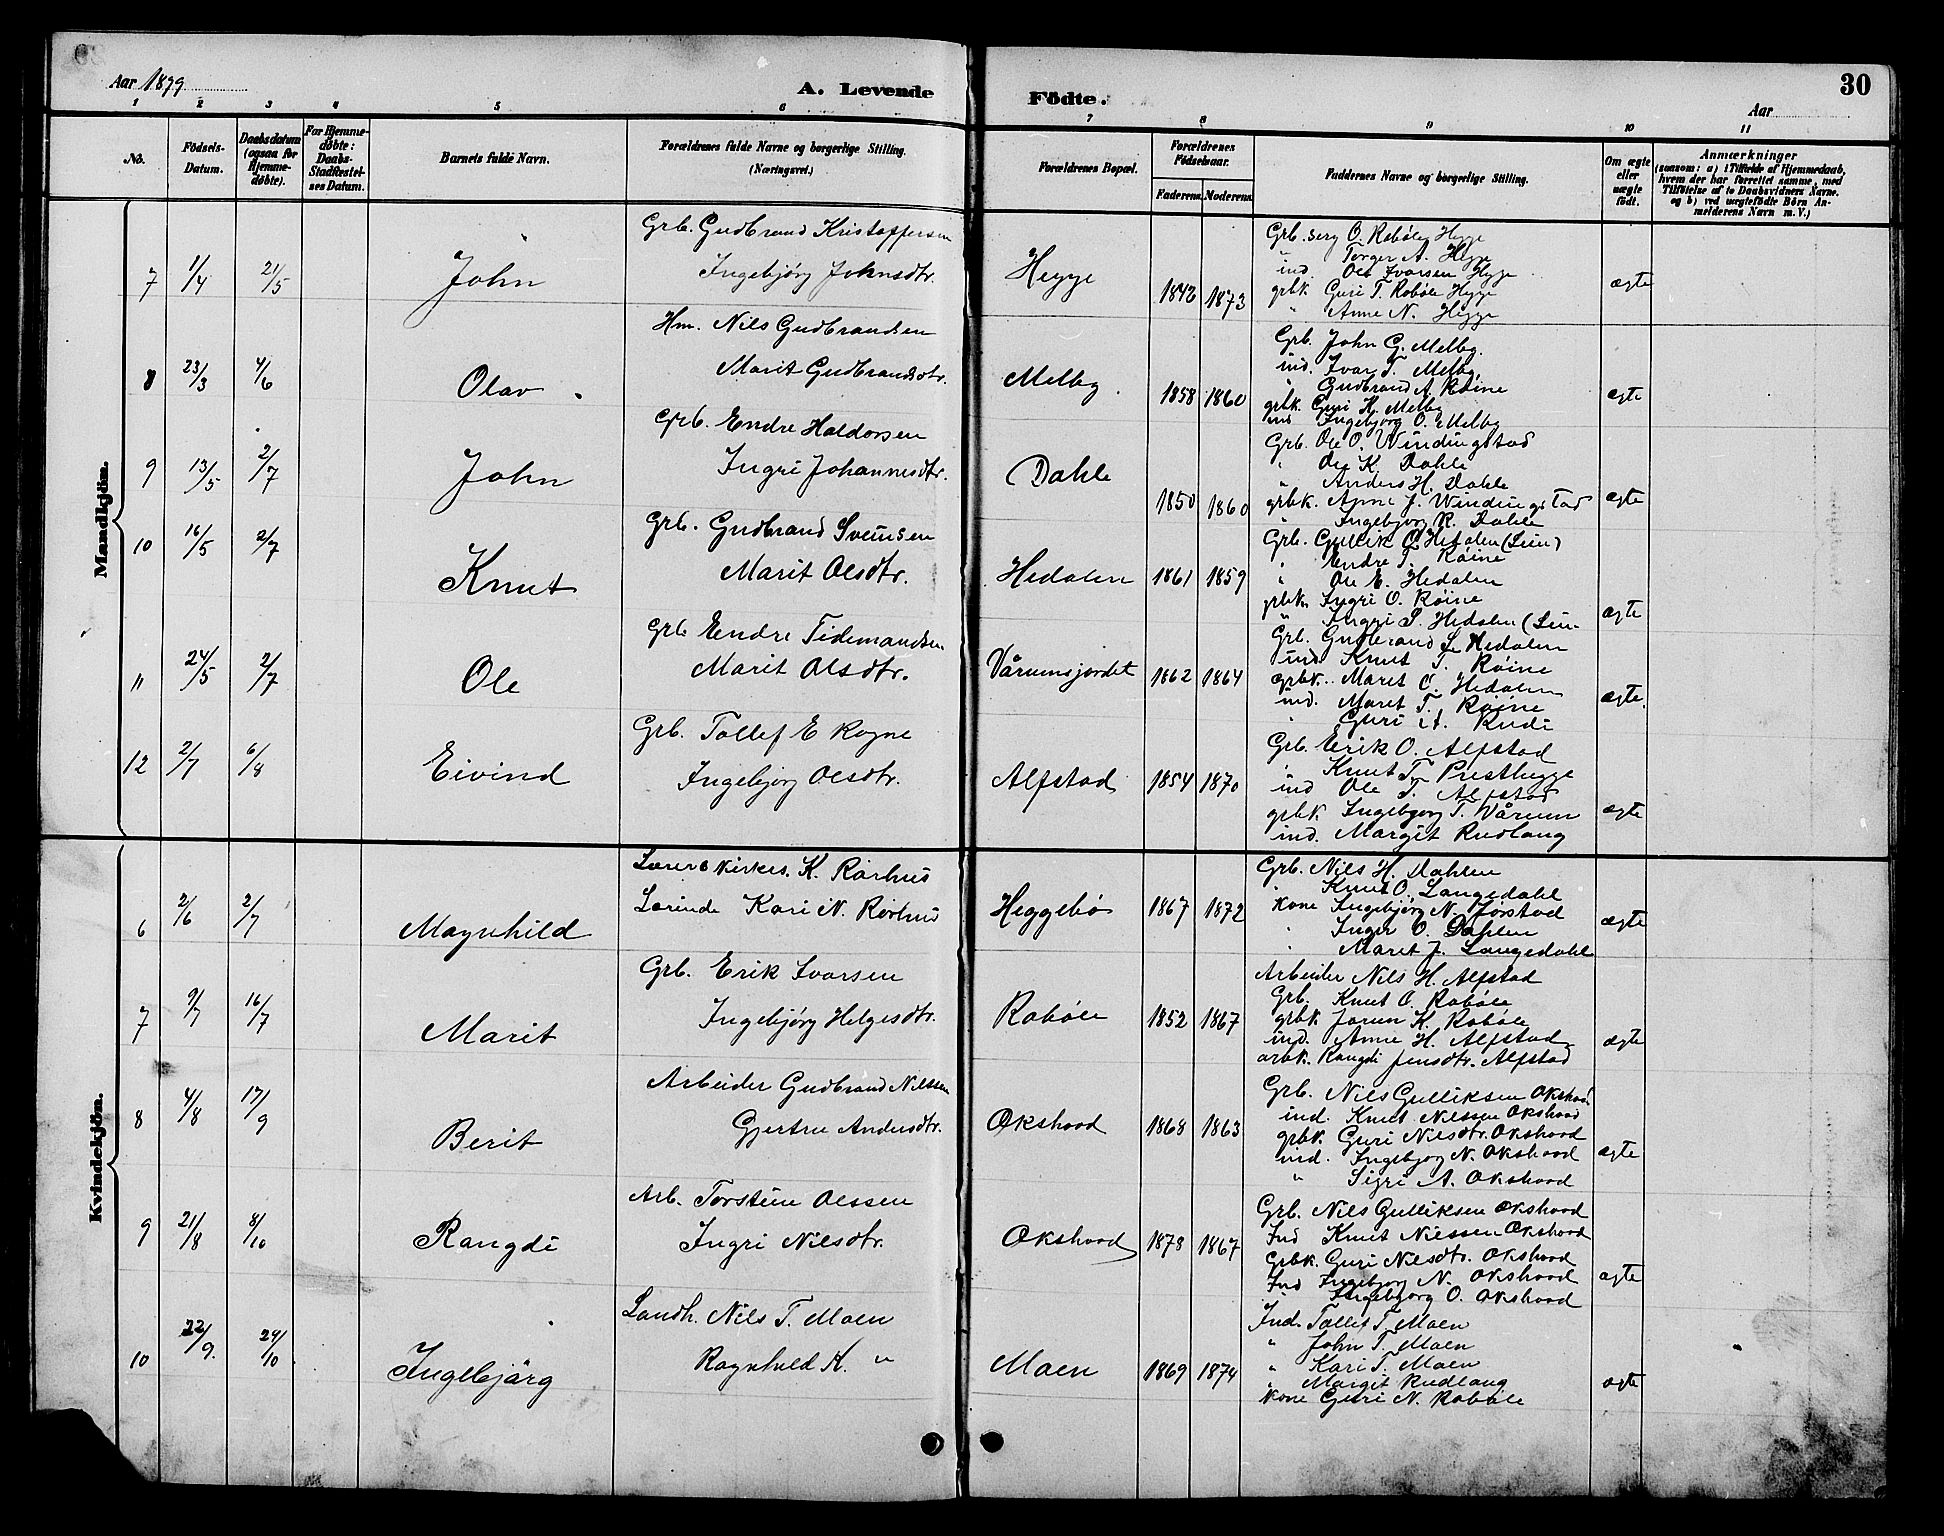 30
Aar 1899
A. Levende Födte.
Aar
1 2 3 4 5 6 7 8 9 10 11
No.
Födsels-Datum.
Daabsdatum (ogsaa for Hjemme-döbte).
For Hjemme-döbte: Daabs-Stadfæstelses Datum.
Barnets fulde Navn.
Forældrenes fulde Navne og borgerlige Stilling. (Næringsvei.)
Forældrenes Bopæl.
Forældrenes Födselsaar.
Faderens. Moderens.
Faddernes Navne og borgerlige Stilling.
Om ægte eller uægte födt.
Anmærkninger
(saasom: a) i Tilfælde af Hjemmedaab, hvem der har forrettet samme, med Tilföielse af to Daabsvidners Navne. og b) ved uægtefödte Börn Anmelderens Navn m. V.)
Mandkjön.
7 1/4 21/5 John
Grb. Gudbrand Kristoffersen
Ingebjörg Johnsdtr.
Hegge 1842 1873
Grb. O. Robøle Hegge
" Torger A. Hegge
ind. Ole Ivarsen Hegge
grbk. Guri T. Robøle Hegge
" Anne N. Hegge
ægte
8 23/3 4/6 Olav
Hm. Nils Gudbrandsen
Marit Gudbrandsdtr.
Melby 1858 1860
Grb. John G. Melby.
ind. Ivar T. Melby,
" Gudbrand A. Røine
grbk. Guri K. Melby
ind Ingebjørg O. Melby
ægte
9 13/5 2/7 John
Grb. Endre Haldorsen
Ingri Johannesdtr.
Dahle 1850 1860
Grb. Ole O. Windingstad
" Ole K. Dahle
" Anders H. Dahle
grbk. Anne J. Windingstad
" Ingebjørg K. Dahle
ægte
10 16/5 2/7 Knut
Grb. Gudbrand Sveinsen
Marit Olsdtr.
Hedalen 1861 1859
Grb. Gullik O. Hedalen
" Endre T. Røine
" Ole E. Hedalen
grbk. Ingri O. Røine
" Ingri S. Hedalen
ægte
11 24/5 2/7 Ole
Grb Endre Tidemandsen
Marit Olsdtr.
Vårumsjordet 1862 1864
Grb. Gudbrand S. Hedalen
ind. Knut T. Røine
grbk. Marit O. Hedalen
ind. Marit T. Røine
" Guri A. Rudi
ægte.
12 2/7 6/8 Eivind
Grb. Tollef E Rogne
Ingebjörg Olsdtr.
Alfstad 1854 1870
Grb. Erik O. Alfstad
" Knut T. Presthegge
ind Ole T. Alfstad
grbk. Ingebjørg T. Vårum
ind. Margit Rudlang
ægte
Kvindekjön.
6 2/6 2/7 Magnhild
Lærer & Kirkes. K. Rørhus
Lærinde Kari N. Rørhus
Heggebø 1867 1872
Grb. Nils H. Dahlen
" Knut O. Langedahl
kone Ingebjørg N. Jørstad
" Inger O. Dahlen
" Maret J. Langedahl
ægte
7 9/7 16/7 Marit
Grb. Erik Ivarsen
Ingebjörg Helgesdtr.
Robøle 1852 1867
Arbeider Nils H. Alfstad
Grb. Knut O. Robøle
grbk Jorun K. Robøle
ind. Anne H. Alfstad
arbk. Rangdi Jensdtr. Alfstad
ægte
8 4/8 17/9 Berit
Arbeider Gudbrand Nilssen
Gjertrue Andersdtr.
Okshovd 1868 1863
Grb. Nils Gulliksen Okshovd
ind. Knut Nilssen Okshovd
grbk. Guri Nilsdtr. Okshovd
ind. Ingebjørg N. Okshovd
" Sigri A. Okshovd
ægte
9 21/8 8/10 Rangdi
Arb. Torstein Olssen
Ingri Nilsdtr.
Okshovd 1878 1867
Grb. Nils Gulliksen Okshovd
Ind Knut Nilssen Okshovd
Grbk. Guri Nilsdtr. Okshovd
Ind Ingebjørg N. Okshovd
" Ingebjørg O. Okshovd
ægte
10 22/9. 29/10 Ingebjørg
Landh. Nils T. Moen
Ragnhild K. "
Moen 1869 1874
Ind. Tollef T. Moen
" John T. Moen
" Kari T. Moen
" Margit Rudlang
kone Guri N. Robøle
ægte